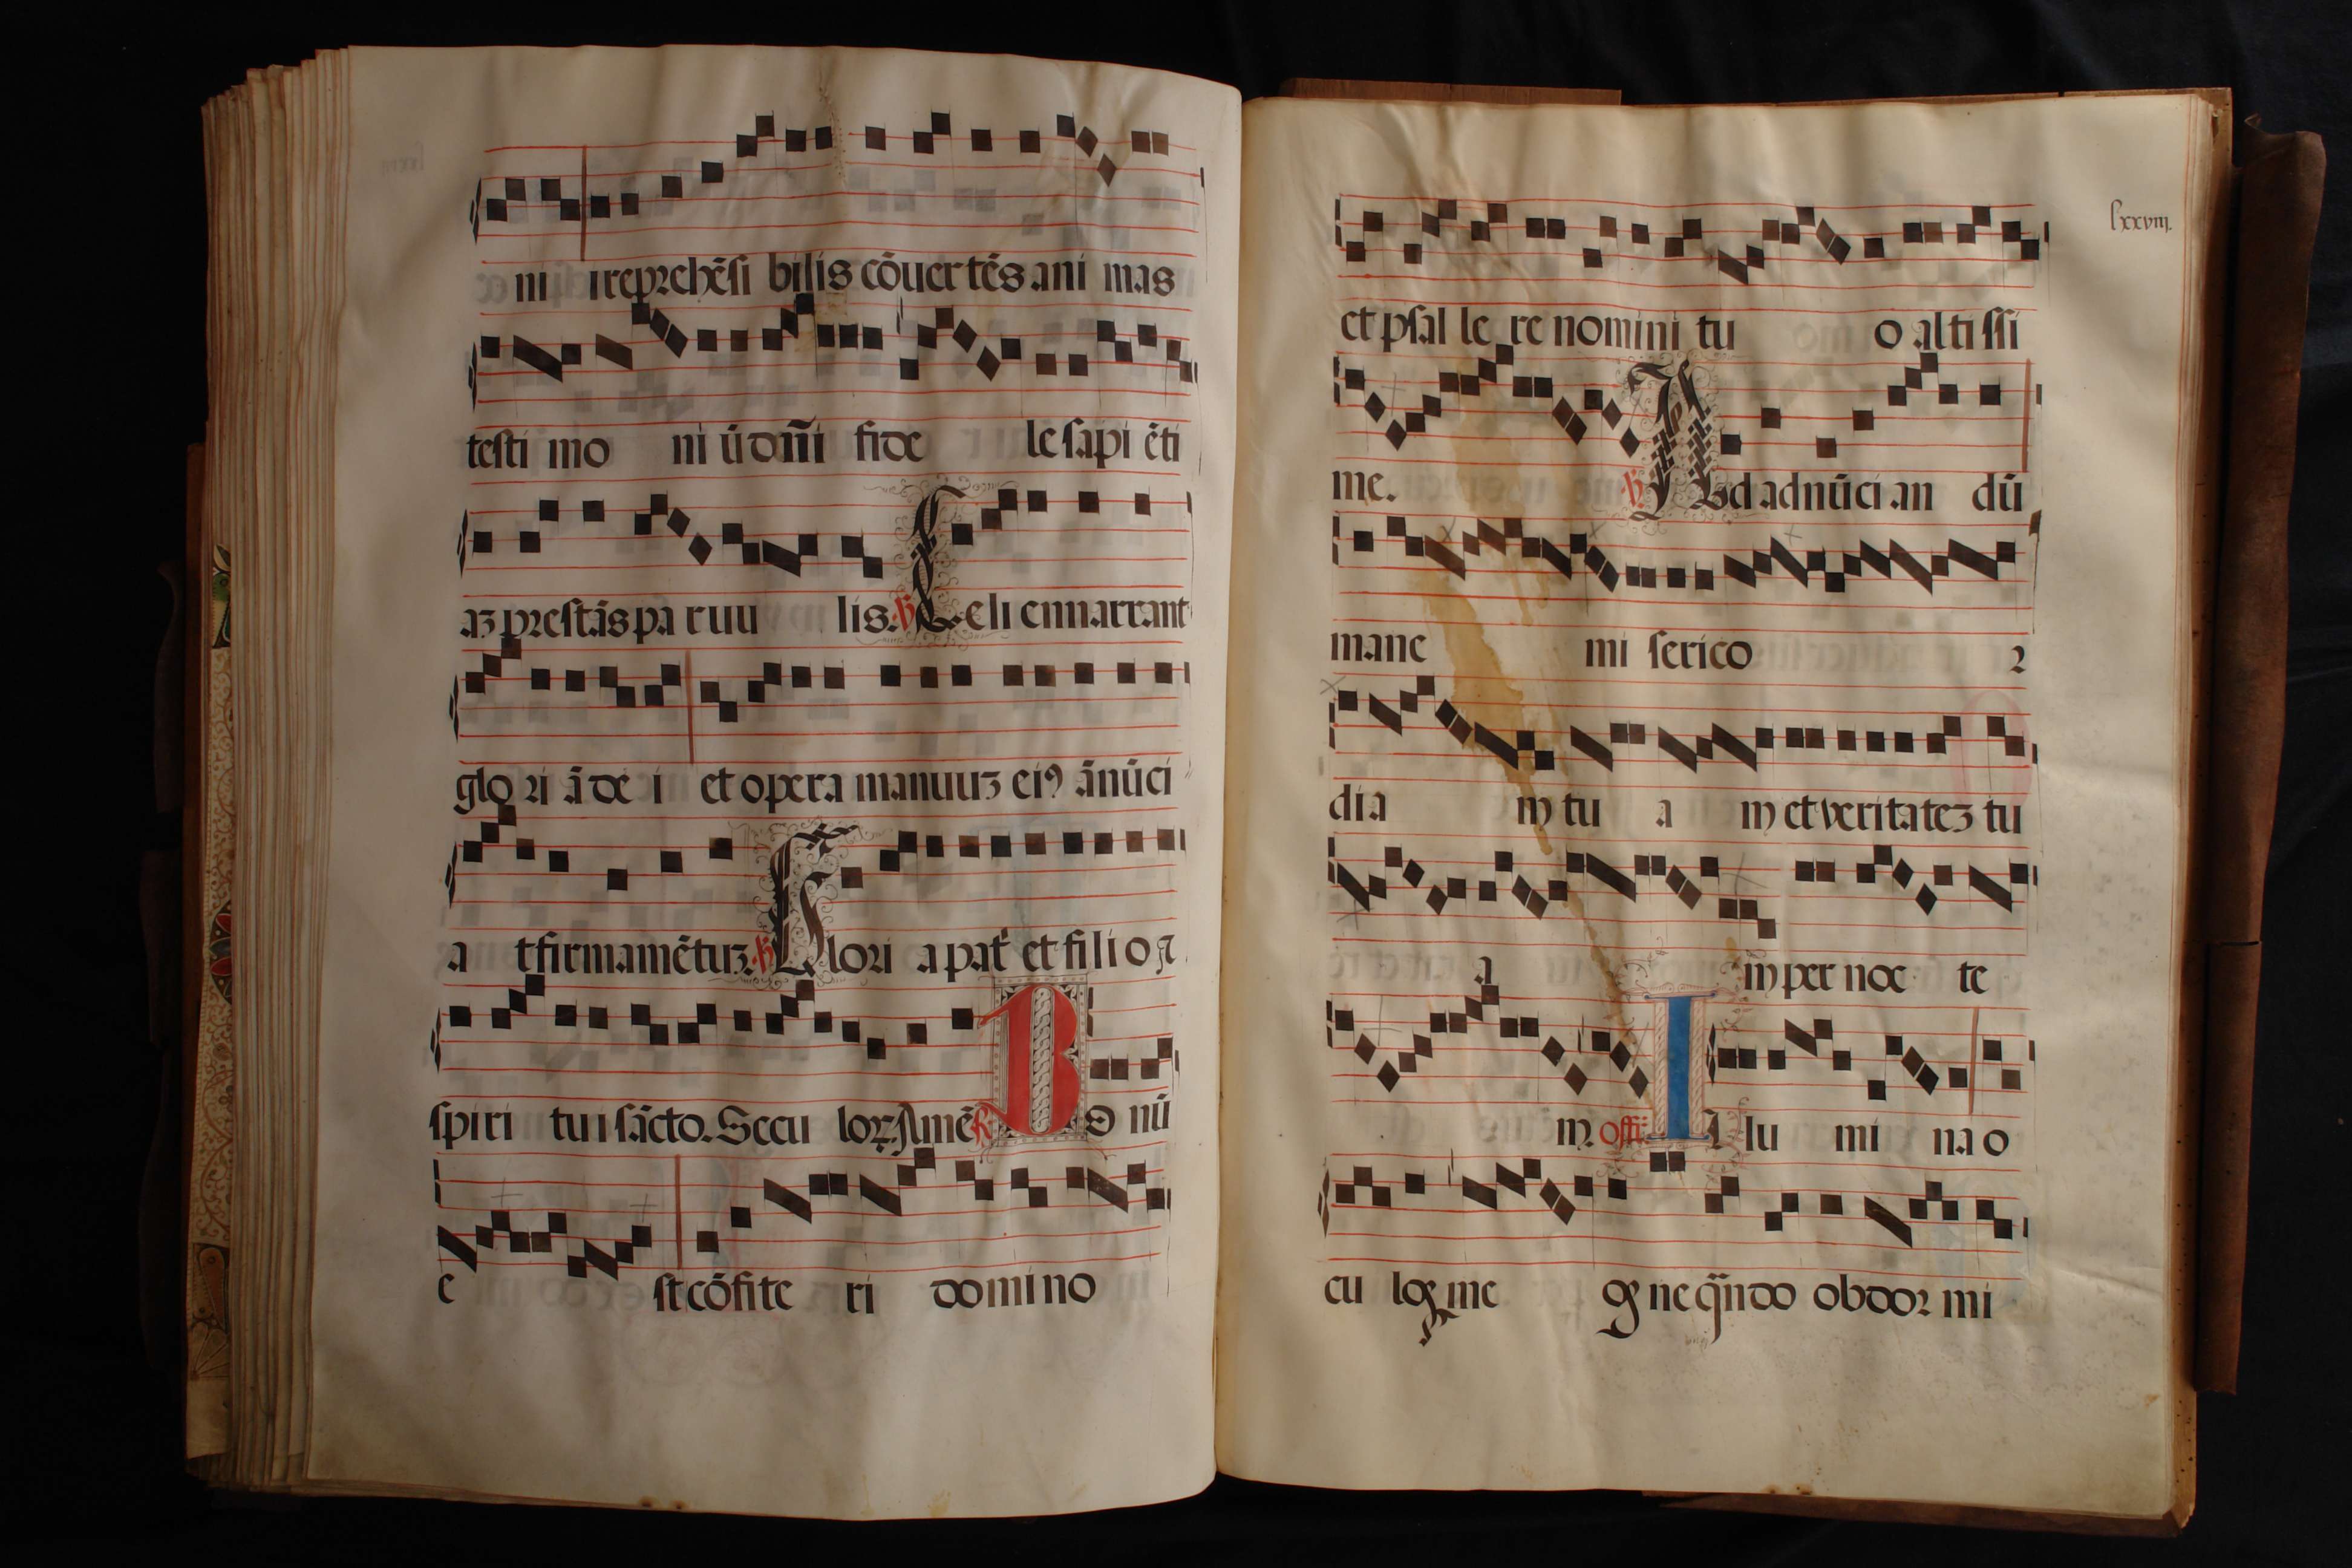 ni irreprehẽsi bilis cõuer tẽs ani mas
testi mo ni ũ dñi fide le sapi ẽti
aʒ prestãs pa ruu lis. ℣ Celi ennarrant
glo ri ã de i et opera manuuʒ eiꝰ ãnũci
a t firmamẽtuʒ. ℣ Glori a pat̃ et filio ⁊
spiri tui sãcto. Secu loꝝ Amẽ ℟ Bo nũ
e st cõfite ri domino
lxxviij.
et psal le re nomini tu o altissi
me. ℣ Ad adnũci an dũ
mane mi serico r
dia m tu a m et veritateʒ tu
a m per noc te
m. offr̃ Il lu mi na o
cu los me os ne qñdo obdor mi